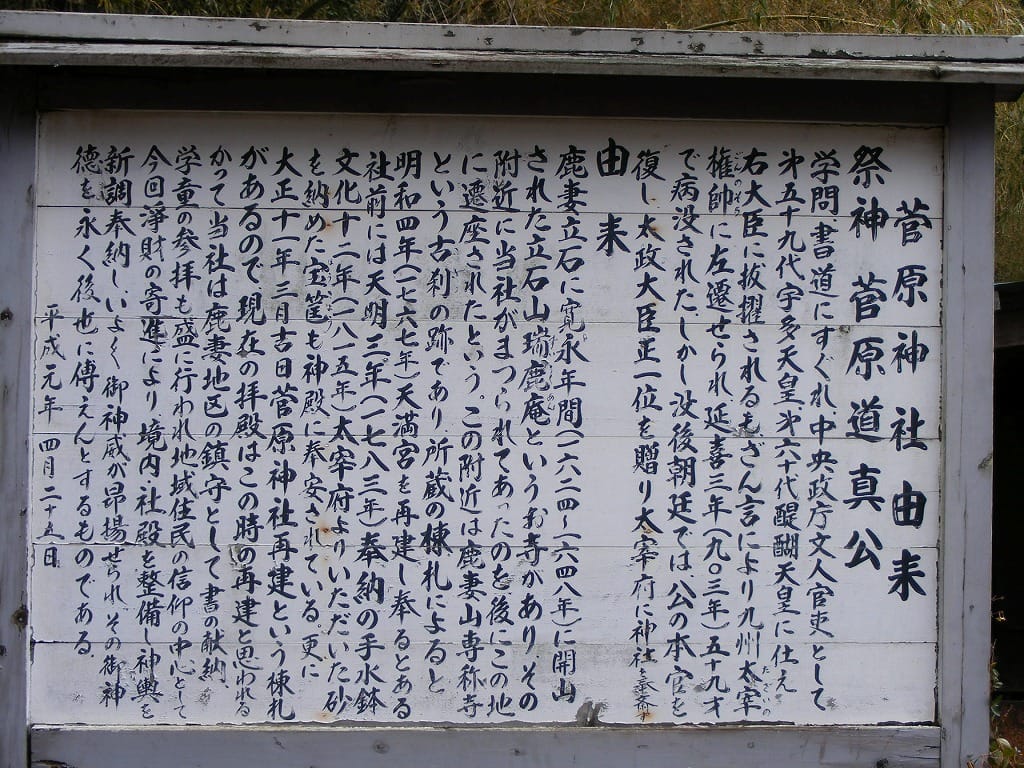 菅原神社由来
祭神 菅原道真公
学問書道にすぐれ、中央政庁文人官吏として
第五十九代宇多天皇、第六十代醍醐天皇に仕え
右大臣に抜擢されるもざん言により九州太宰
権帥に左遷せられ延喜三年(九〇三年)五十九才
で病没された。しかし没後朝廷では、公の本官を
復し太政大臣正一位を贈り太宰府に神社を
由来
鹿妻立石に寛永年間(一六二四~一六四八年)に開山
された立石山瑞鹿庵というお寺がありその
附近に当社がまつられてあったのを後にこの地
に遷座されたという。この附近は鹿妻山専称寺
という古刹の跡であり所蔵の棟札によると
明和四年(一七六七年)天満宮を再建し奉るとある
社前には天明三年(一七八三年)奉納の手水鉢
文化十二年(一八一五年)太宰府よりいただいた砂
を納めた宝筐も神殿に奉安されている。更に
大正十一年三月吉日菅原神社再建という棟札
があるので現在の拝殿はこの時の再建と思われる
かつて当社は鹿妻地区の鎮守として書の献納、
学童の参拝も盛に行われ地域住民の信仰の中心として
今回浄財の寄進により、境内、社殿を整備し神輿を
新調奉納しいよく御神威が昂揚せられ、その御神
徳を永く後也に傳えんとするものである。
平成元年四月二十五日